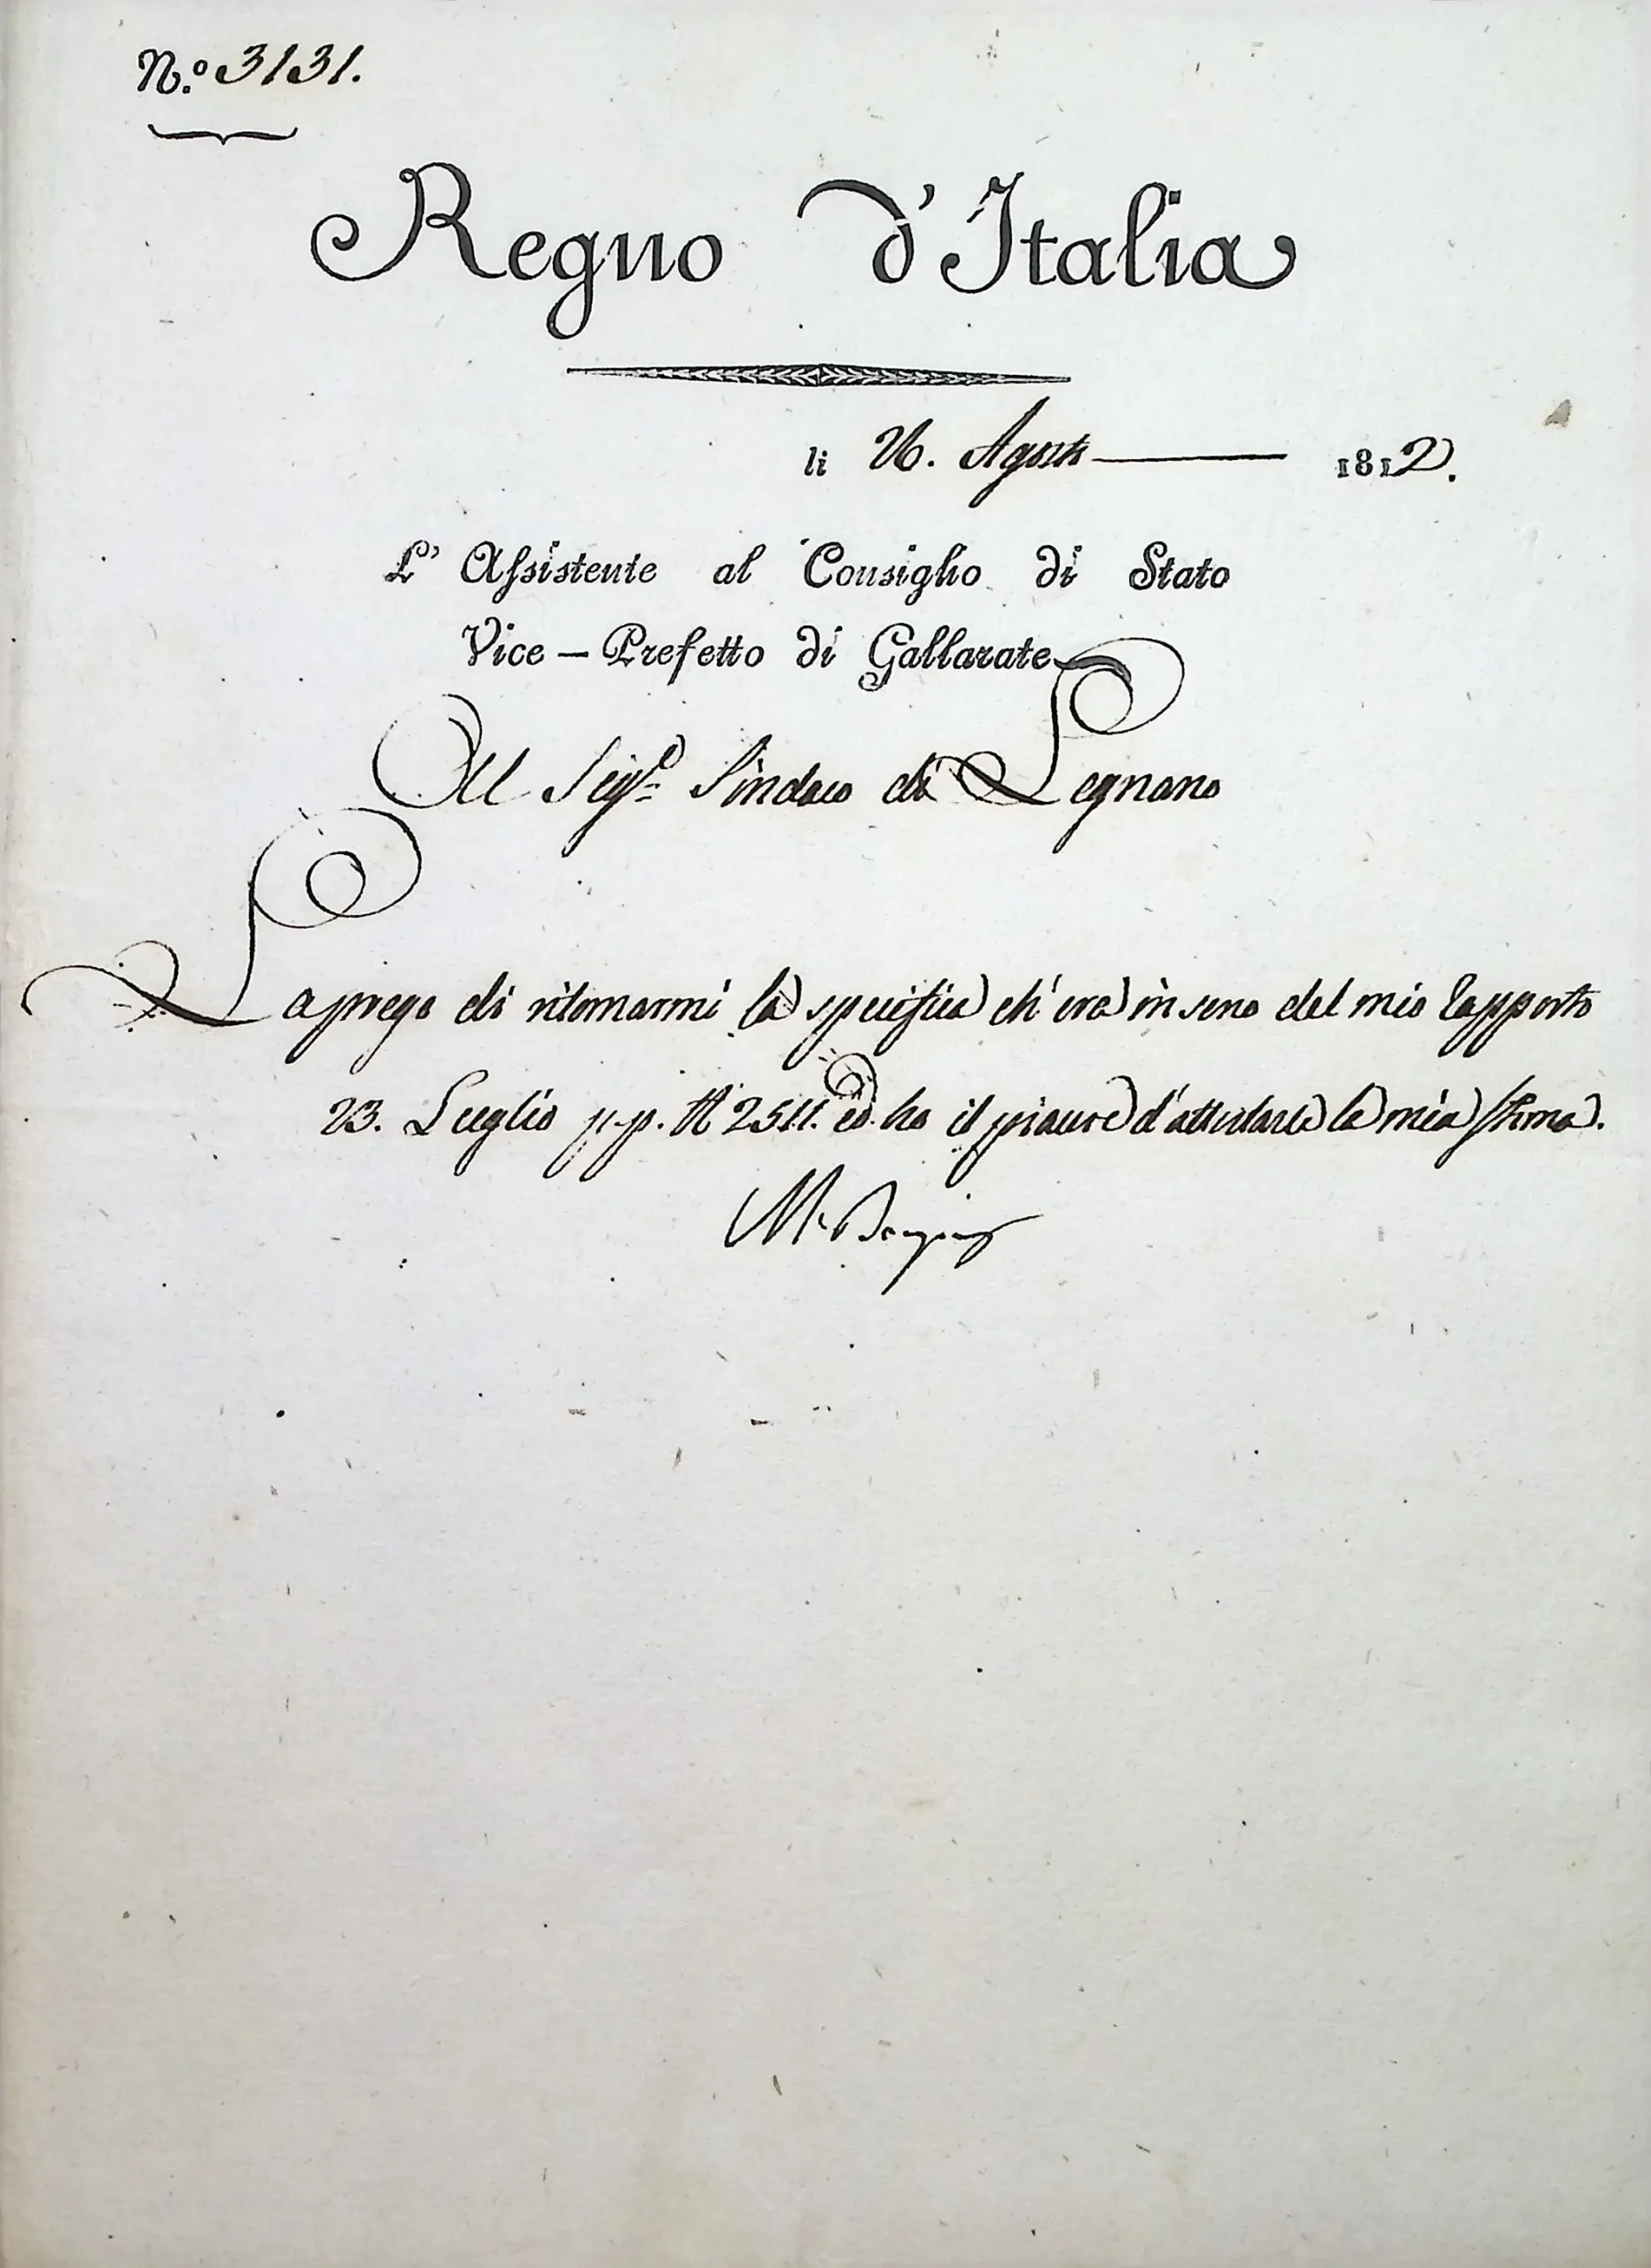 N.º 3131.
Regno d'Italia
li 26. Agosto 1812.
L' Assistente al Consiglio di Stato
Vice - Prefetto di Gallarate
Al Sig.r Sindaco di Legnano
La prego di ritornarmi la specifica ch'era in seno del mio rapporto
23. Luglio p.p. N 2511. ed ho il piacere d'attestarle la mia stima.